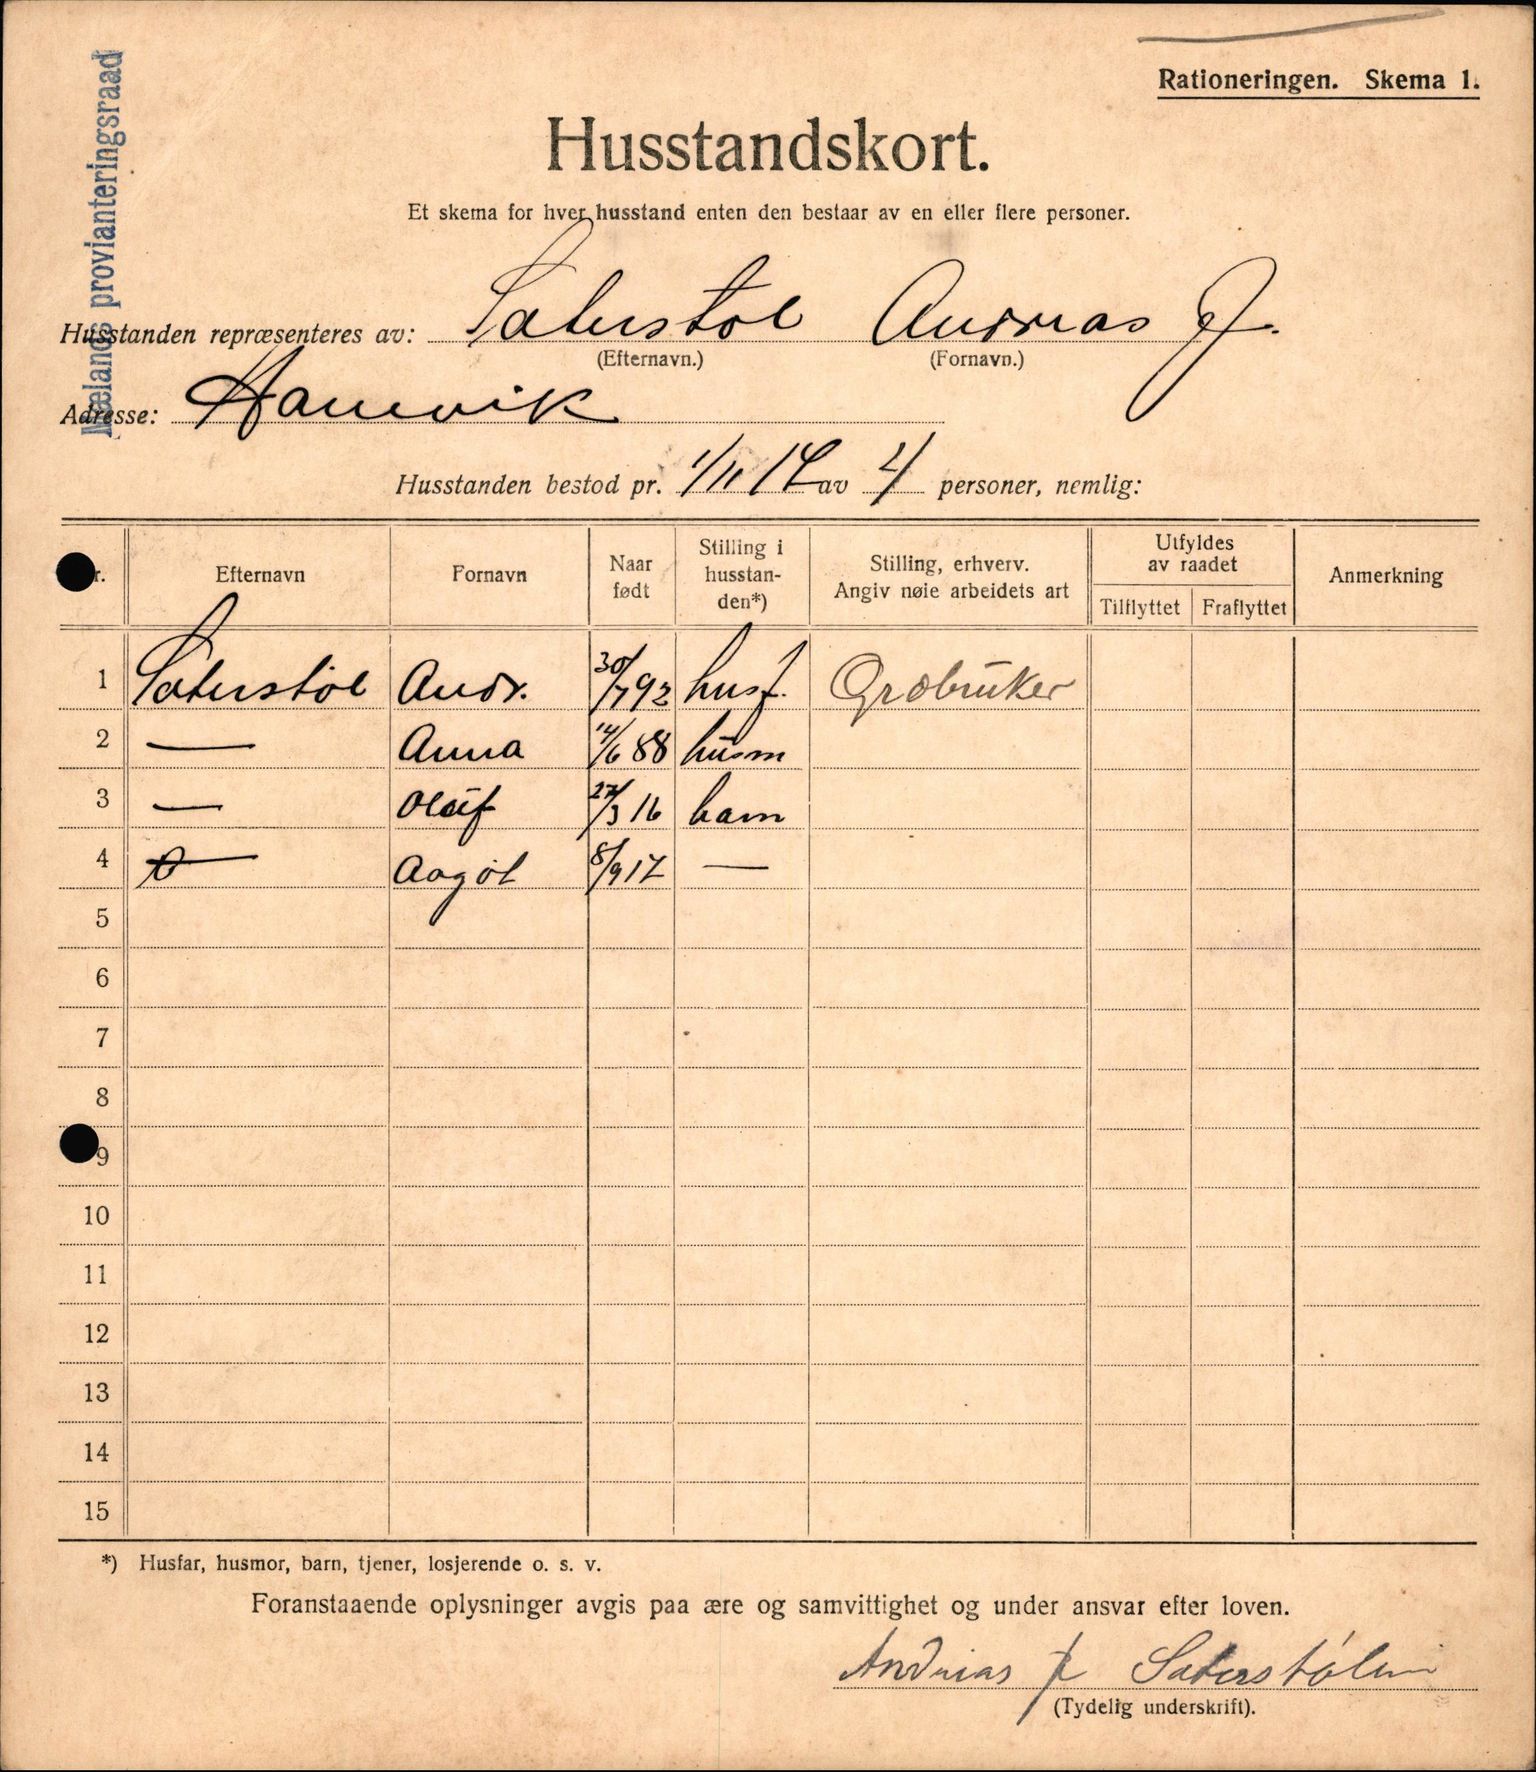 Mælands provianteringsraad
Rationeringen. Skema 1.
Husstandskort.
Et skema for hver husstand enten den bestaar av en eller flere personer.
Husstanden repræsenteres av: Saterstøl Andreas J.
(Efternavn.) (Fornavn.)
Adresse: Hamvik
Husstanden bestod pr. 1/11 17 av 4 personer, nemlig:
Nr. Efternavn Fornavn Naar født Stilling i husstanden*) Stilling, erhverv. Angiv nøie arbeidets art Utfyldes av raadet Tilflyttet Fraflyttet Anmerkning
1 Saterstøl Andr. 30/7 92 husf. Grøbruker
2 — Anna 14/6 88 husm
3 — Oluf 27/3 16 barn
4 — Aagot 8/9 17 —
5
6
7
8
9
10
11
12
13
14
15
*) Husfar, husmor, barn, tjener, losjerende o. s. v.
Foranstaaende oplysninger avgis paa ære og samvittighet og under ansvar efter loven.
Andreas J Saterstølen
(Tydelig underskrift).